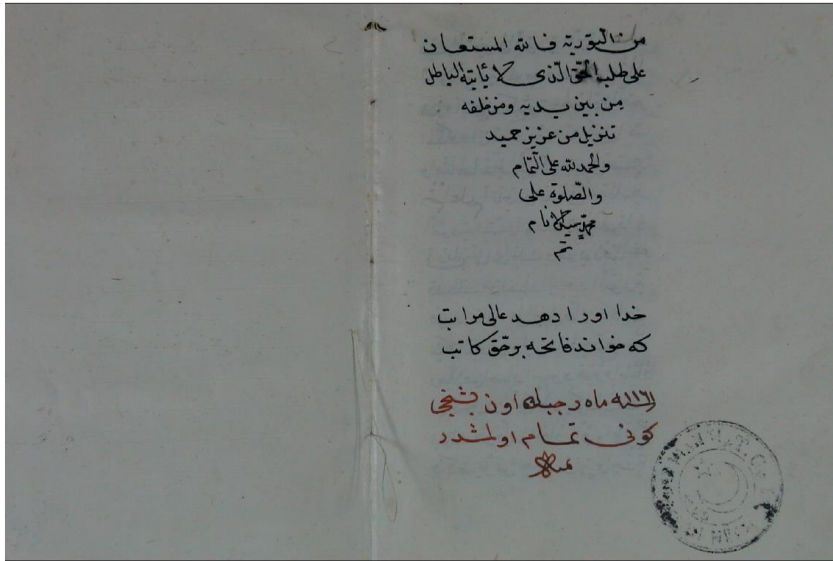 من التورية فالله المستعان
على طلب الحق الذى لا يأتيه الباطل
من بين يديه ومن خلفه
تنزيل من عزيز حميد
والحمد لله على التمام
والصلوة على
محمد سيد الانام
تم
خدا اورا دهد عالى مراتب
كه خواند فاتحه بر حق كاتب
سنه ١١٦١ ماه رجبك اون بشنجى
كونى تمام اولمشدر